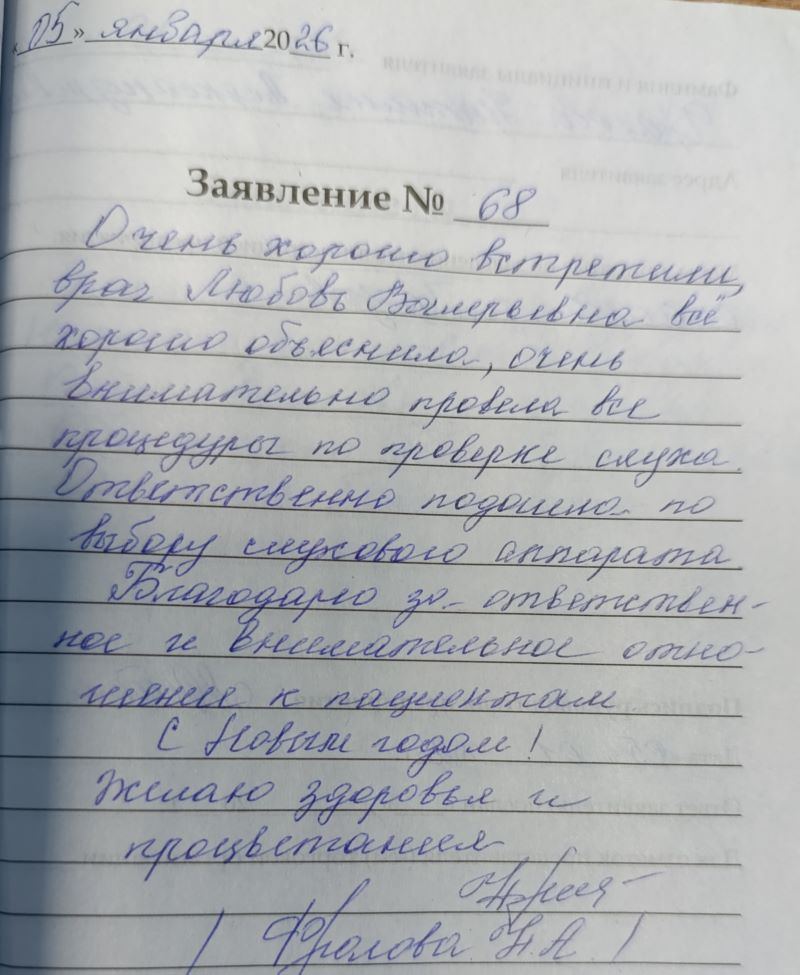 «05» января 2026 г.
Заявление № 68
Очень хорошо встретили,
врач Любовь Валерьевна всё
хорошо объяснила, очень
внимательно провела все
процедуры по проверке слуха.
Ответственно подошла по
выбору слухового аппарата.
Благодарю за ответствен-
ное и внимательное отно-
шение к пациентам
С Новым годом!
Желаю здоровья и
процветания
/ Фролова Н.А. /